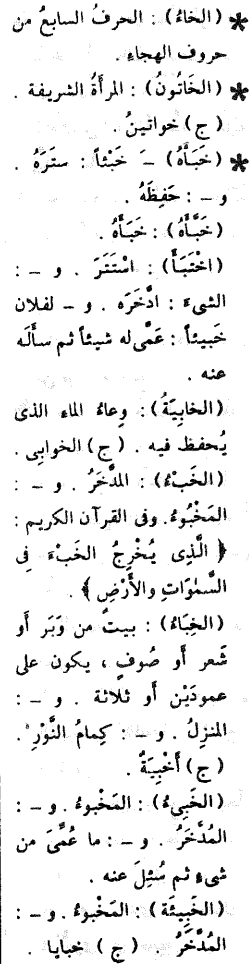 * (الخاءُ) : الحرفُ السابعُ من
حروف الهجاء .
* (الخَاتُونُ) : المرأةُ الشريفة .
(ج) خواتينُ .
* (خَبَأَهُ) -َ خَبْئاً : ستَرَهُ .
و - : حَفِظَهُ .
(خَبَّأَهُ) : خَبَأَهُ .
(اخْتَبَأَ) : اسْتَتَرَ . و - :
الشيءَ : ادَّخَرَه . و - لفلان
خَبيئاً : عَمَّى له شيئاً ثم سأَلَه
عنه .
(الخابِيَةُ) : وِعاءُ الماءِ الذى
يُحفظ فيه . (ج) الخوابِى .
(الخَبْءُ) : المدَّخَرُ . و - :
المَخْبُوءُ. وفى القرآن الكريم :
﴿ الَّذِى يُخْرِجُ الخَبْءَ فِى
السَّمٰوَاتِ والأَرْضِ ﴾ .
(الخِبَاءُ) : بيتٌ من وَبَر أَو
شَعر أَو صُوفٍ ، يكون على
عمودَيْن أَو ثلاثة . و - :
المنزِلُ . و - : كِمامُ النَّوْرِ .
(ج) أَخْبِيَةٌ .
(الخَبِىءُ) : المَخْبوءُ . و - :
المُدَّخَرُ . و - : ما عُمِّىَ من
شىءٍ ثم سُئِلَ عنه .
(الخَبِيئَة) : المَخْبوءُ . و - :
المُدَّخَرُ . (ج) خبايا .